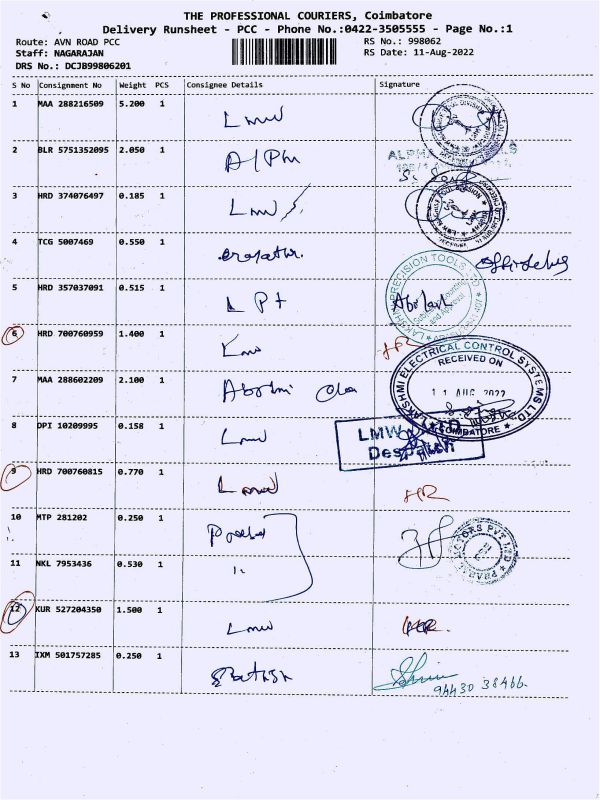 THE PROFESSIONAL COURIERS, Coimbatore
Delivery Runsheet - PCC - Phone No.:0422-3505555 - Page No.:1
Route: AVN ROAD PCC RS No.: 998062
Staff: NAGARAJAN RS Date: 11-Aug-2022
DRS No.: DCJB99806201
S No Consignment No Weight PCS Consignee Details Signature
1 MAA 288216509 5.200 1 Lmw
2 BLR 5751352095 2.050 1 Alpha
ALPHA
3 HRD 374076497 0.185 1 Lmw
4 TCG 5007469 0.550 1
5 HRD 357037091 0.515 1 LPT
LAKSHMI PRECISION TOOLS LTD
6 HRD 700760959 1.400 1 Lmw HR
LAKSHMI ELECTRICAL CONTROL SYSTEMS LTD
RECEIVED ON
7 MAA 288602209 2.100 1
11 AUG 2022
COIMBATORE
8 DPI 10209995 0.158 1 Lmw
LMW LTD
Despatch
9 HRD 700760815 0.770 1 Lmw HR
10 MTP 281202 0.250 1
11 NKL 7953436 0.530 1 "
12 KUR 527204350 1.500 1 Lmw HR.
13 IXM 501757285 0.250 1
94430 38466.